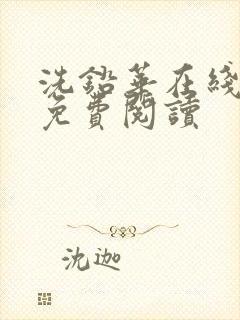 洗鉛華在綫
免費閱讀
沈迦